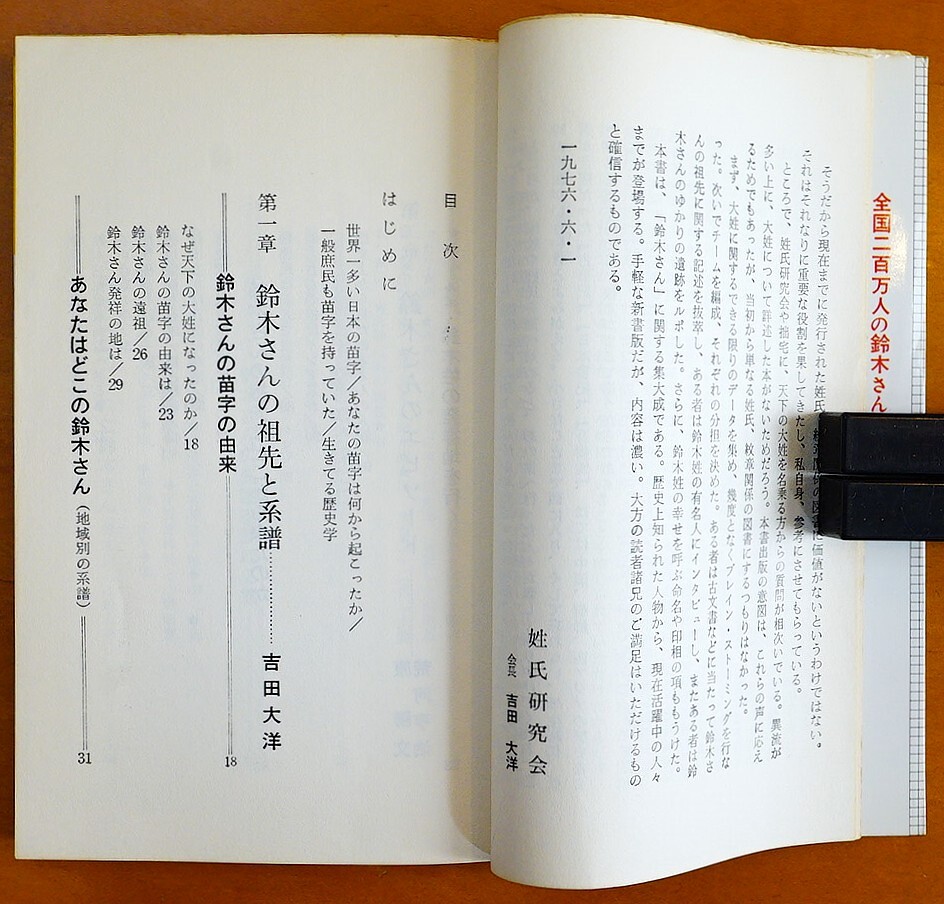 全国二百万人の鈴木さん
そうだから現在までに発行された姓氏、紋章関係の図書に価値がないというわけではない。
それはそれなりに重要な役割を果してきたし、私自身、参考にさせてもらっている。
ところで、姓氏研究会や拙宅に、天下の大姓を名乗る方からの質問が相次いでいる。異流が
多い上に、大姓について詳述した本がないためだろう。本書出版の意図は、これらの声に応え
るためでもあったが、当初から単なる姓氏、紋章関係の図書にするつもりはなかった。
まず、大姓に関するできる限りのデータを集め、幾度となくブレイン・ストーミングを行な
った。次いでチームを編成、それぞれの分担を決めた。ある者は古文書などに当たって鈴木さ
んの祖先に関する記述を抜萃し、ある者は鈴木姓の有名人にインタビューし、またある者は鈴
木さんのゆかりの遺跡をルポした。さらに、鈴木姓の幸せを呼ぶ命名や印相の項ももうけた。
本書は、「鈴木さん」に関する集大成である。歴史上知られた人物から、現在活躍中の人々
までが登場する。手軽な新書版だが、内容は濃い。大方の読者諸兄のご満足はいただけるもの
と確信するものである。
一九七六・六・一
姓氏研究会
会長 吉田 大洋
目次
はじめに
世界一多い日本の苗字/あなたの苗字は何から起こったか/
一般庶民も苗字を持っていた/生きてる歴史学
第一章 鈴木さんの祖先と系譜…………吉田大洋
鈴木さんの苗字の由来 18
なぜ天下の大姓になったのか/18
鈴木さんの苗字の由来は/23
鈴木さんの遠祖/26
鈴木さん発祥の地は/29
あなたはどこの鈴木さん(地域別の系譜) 31